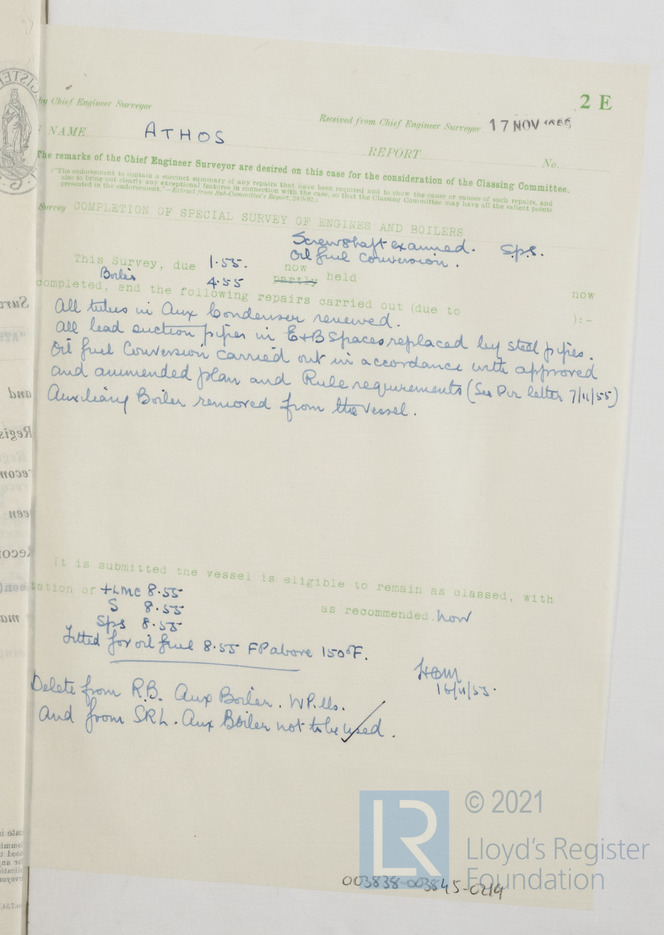 2 E
by Chief Engineer Surveyor
Received from Chief Engineer Surveyor 17 NOV
NAME ATHOS
REPORT No.
The remarks of the Chief Engineer Surveyor are desired on this case for the consideration of the Classing Committee.
("The endorsement to contain a succinct summary of any repairs that have been required and to show the cause or causes of such repairs, and
also to bring out clearly any exceptional features in connection with the case, so that the Classing Committee may have all the salient points
presented in the endorsement."—Extract from Sub-Committee's Report,
Survey COMPLETION OF SPECIAL SURVEY OF ENGINES AND BOILERS
Screwshaft examined. Sps.
Oil fuel Conversion.
This Survey, due 1.55. now
Boiler 4.55 partly held now
completed, and the following repairs carried out (due to ):-
All tubes in Aux Condenser renewed.
All lead suction pipes in E&B Spaces replaced by steel pipes.
Oil fuel Conversion carried out in accordance with approved
and ammended plan and Rule requirements (See Pir letter 7/11/55)
Auxiliary Boiler removed from the vessel.
It is submitted the vessel is eligible to remain as classed, with
tation of +LMC 8.55
S 8.55 as recommended. now
Sps 8.55
Fitted for oil fuel 8.55 FP above 150°F.
16/11/55.
Delete from R.B. Aux Boiler. WP.
and from SRL. Aux Boiler not to be used.
© 2021
Lloyd's Register
Foundation
LR
003838-003845-0219